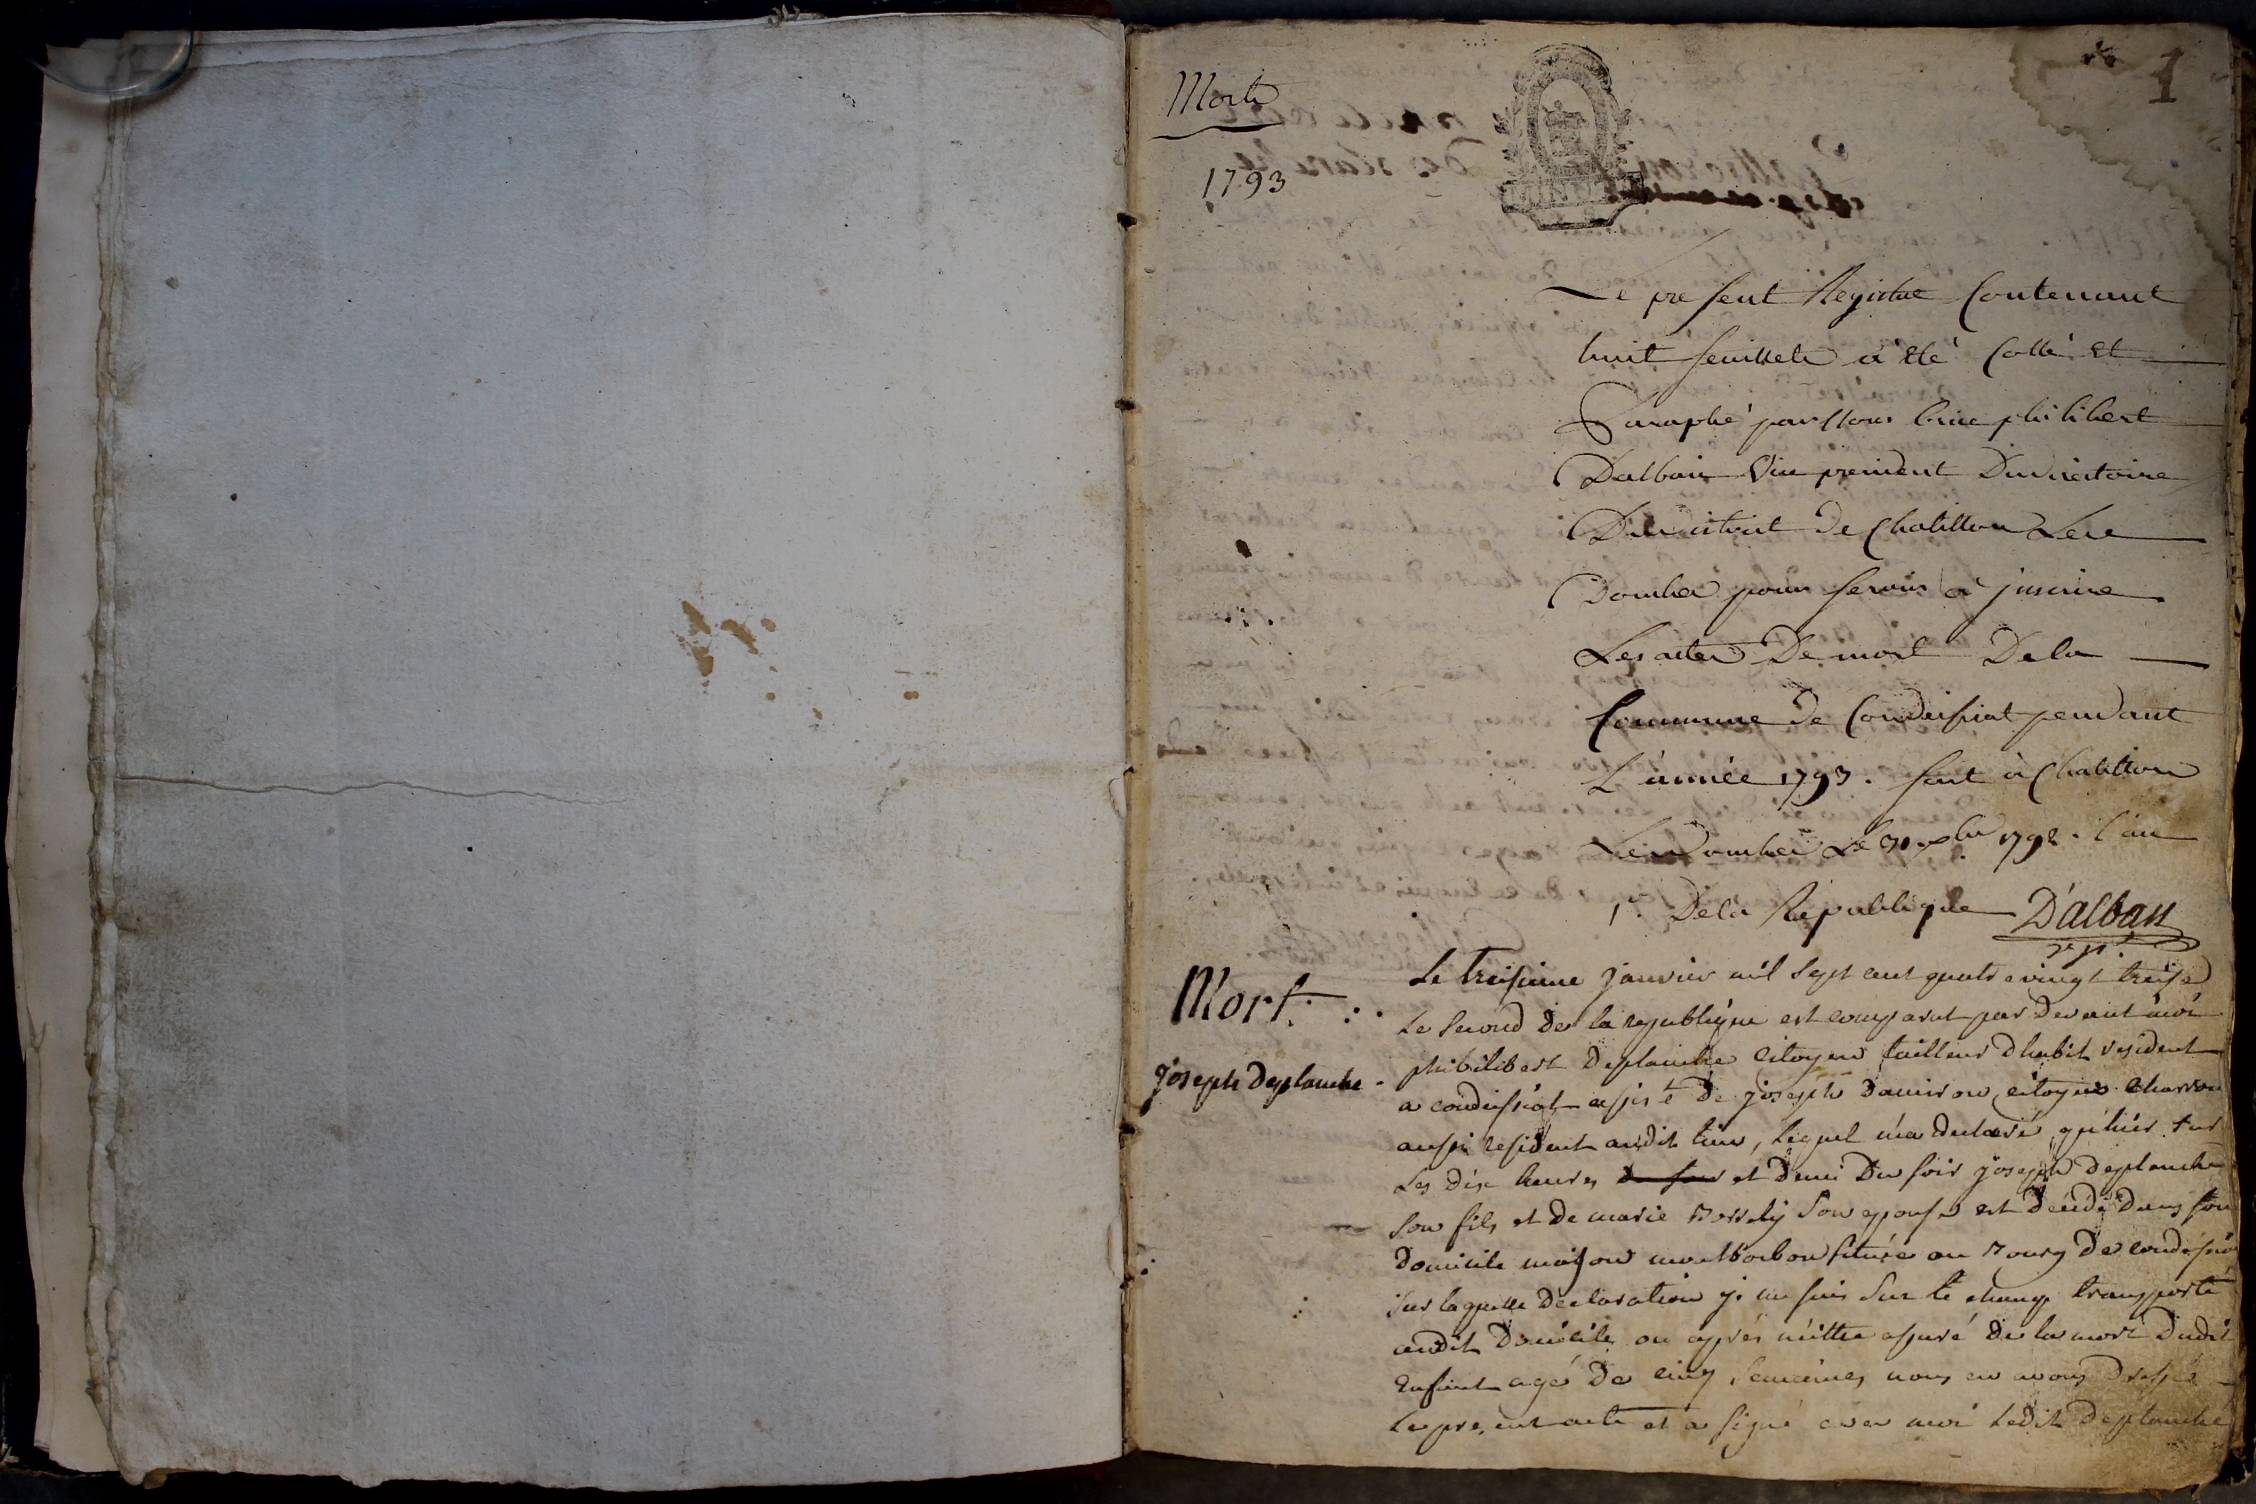 Morts
1
1793
Le present Registre Contenant
huit feuillets a été Cotté et
Paraphé par Nous Philibert
Dalban Vice president Du directoire
Du district de Chatillon Les
Dombes pour servir à inscrire
Les actes De mort De la
Commune de Condeissiat pendant
L'année 1793. fait à Chatillon
Les Dombes Le 31 xbre 1792. l'an
1er De la Republique D'alban
Le troisieme janvier mil sept cent quatre vingt treise
Mort.
Le second de la republique est comparut par devant moi
joseph Deplanche
philibert Deplanche Citoyen tailleur d'habit resident
a condeissiat assisté de joseph damiron citoyen charron
aussi resident audit lieu, lequel m'a declaré qu'hier sur
Les dix heures du soir et demi Du soir joseph Deplanche
son fils et de marie son epouse est décédé dans son
Domicile maison située au Bourg de condeissiat
sur laquelle declaration je me suis sur le champ transporté
audit Domicile ou après m'être assuré de la mort dudit
Enfant agé De cinq semaines nous en avons dressé
Le present acte et a signé avec moi Ledit Deplanche